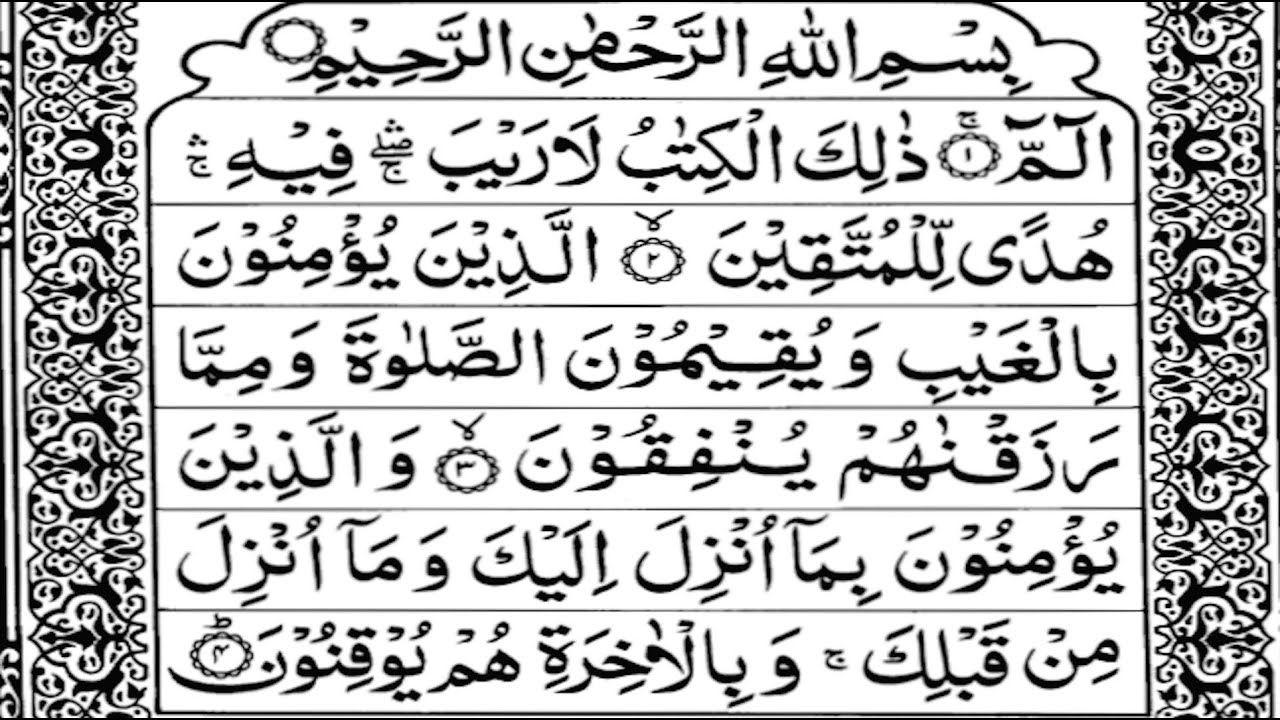 بِسْمِ اللهِ الرَّحْمٰنِ الرَّحِيْمِ
الٓمّٓ ۚ‏ ۱ ذٰلِكَ الْكِتٰبُ لَا رَيْبَ ۛۖۚ فِيْهِ ۛۚ
هُدًى لِّلْمُتَّقِيْنَ ۙ‏ ۲ الَّذِيْنَ يُؤْمِنُوْنَ
بِالْغَيْبِ وَيُقِيْمُوْنَ الصَّلٰوةَ وَمِمَّا
رَزَقْنٰهُمْ يُنْفِقُوْنَ ۙ‏ ۳ وَالَّذِيْنَ
يُؤْمِنُوْنَ بِمَآ اُنْزِلَ اِلَيْكَ وَمَآ اُنْزِلَ
مِنْ قَبْلِكَ ۚ وَبِالْاٰخِرَةِ هُمْ يُوْقِنُوْنَ ؕ‏ ۴